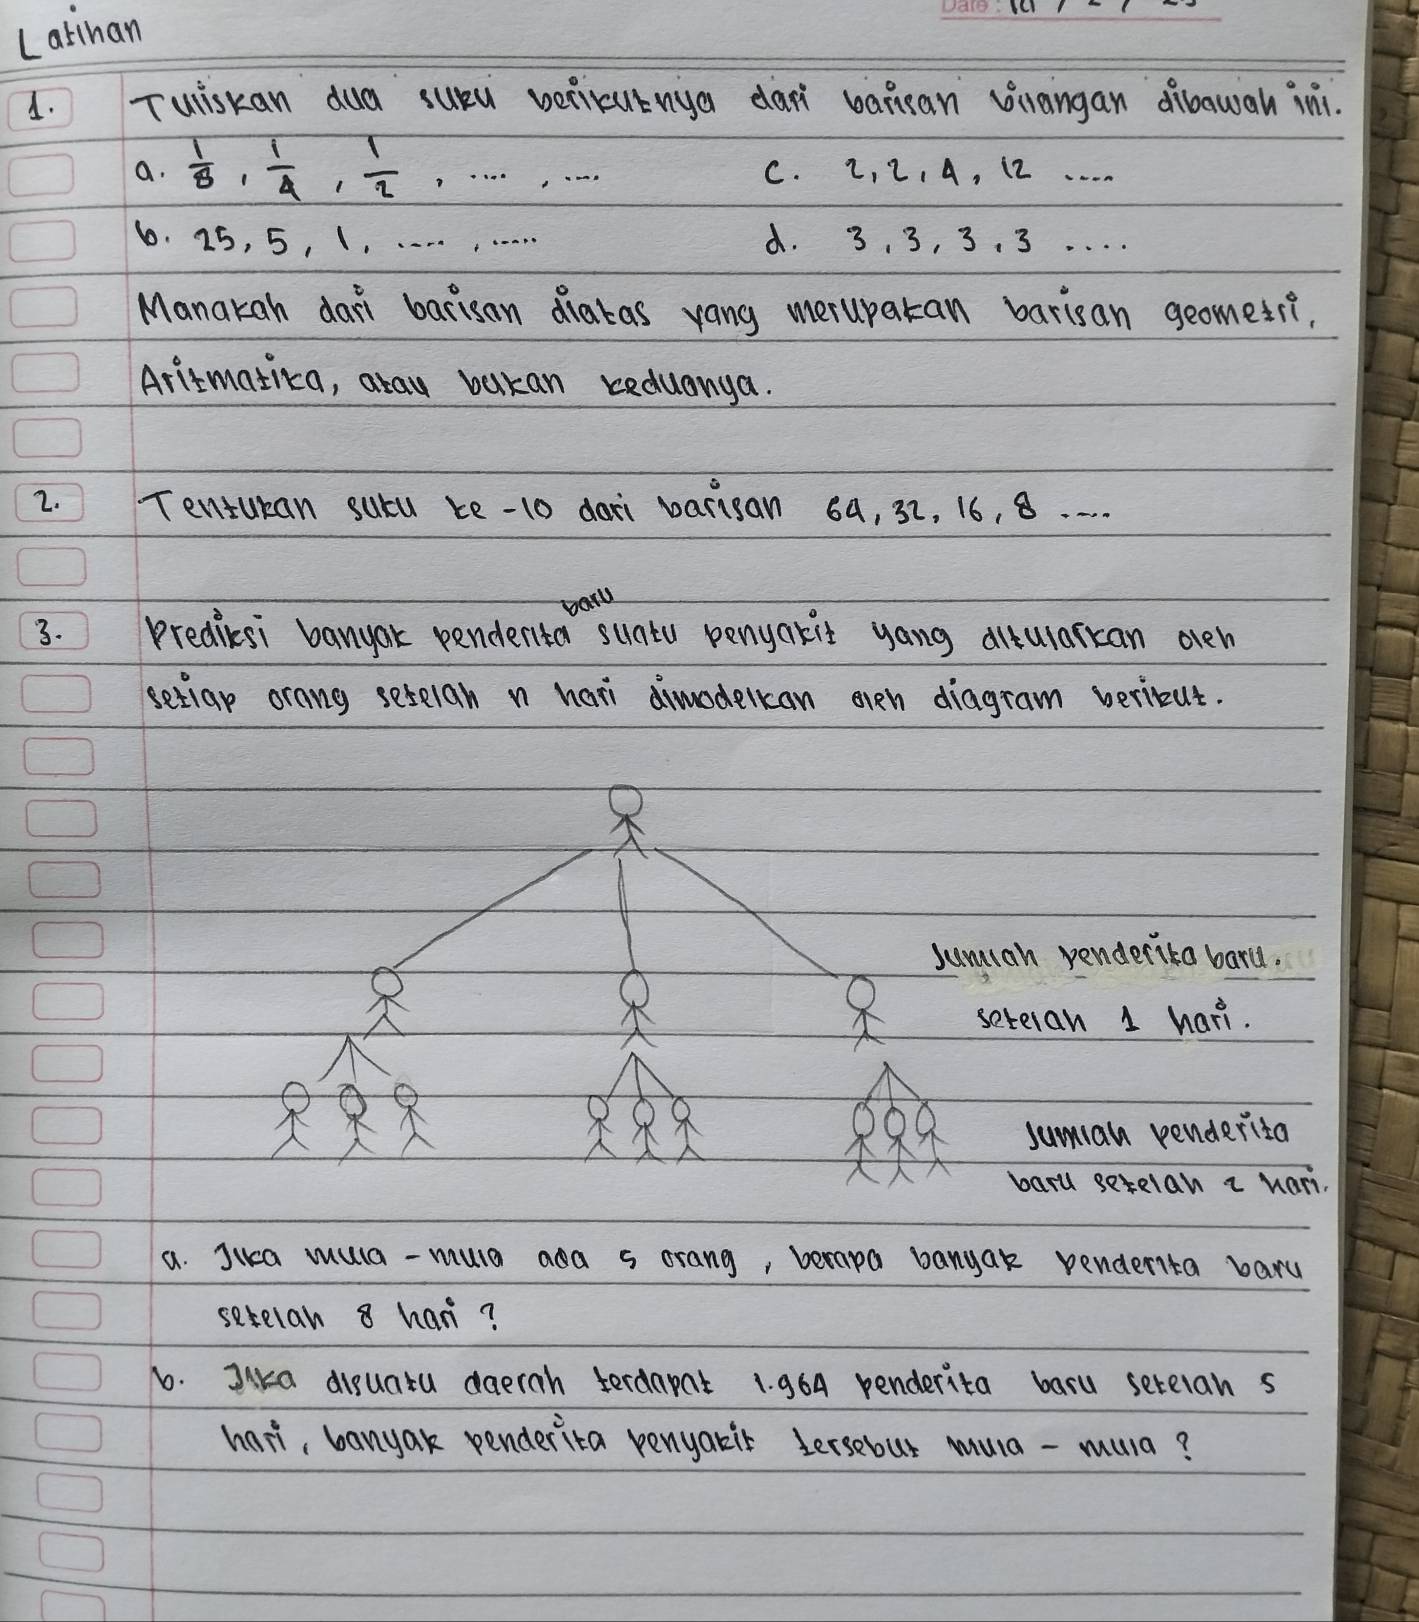 Latihan
Date :
1. Tuliskan dua suku berikutnya dari barisan bilangan dibawah ini.
a. 1/8, 1/4, 1/2, ...., .... c. 2, 2, 4, 12 ....
b. 25, 5, 1, ....., ..... d. 3, 3, 3, 3 ....
Manakah dari barisan diatas yang merupakan barisan geometri,
Aritmatika, atau bukan keduanya.
2. Tentukan suku ke-10 dari barisan 64, 32, 16, 8 ....
3. Prediksi banyak penderita baru suatu penyakit yang ditularkan oleh
setiap orang setelah n hari dimodelkan oleh diagram berikut.
Jumlah penderita baru.
setelah 1 hari.
Jumlah penderita
baru setelah 2 hari.
a. Jika mula-mula ada 5 orang, berapa banyak penderita baru
setelah 8 hari?
b. Jika disuatu daerah terdapat 1.964 penderita baru setelah 5
hari, banyak penderita penyakit tersebut mula-mula?